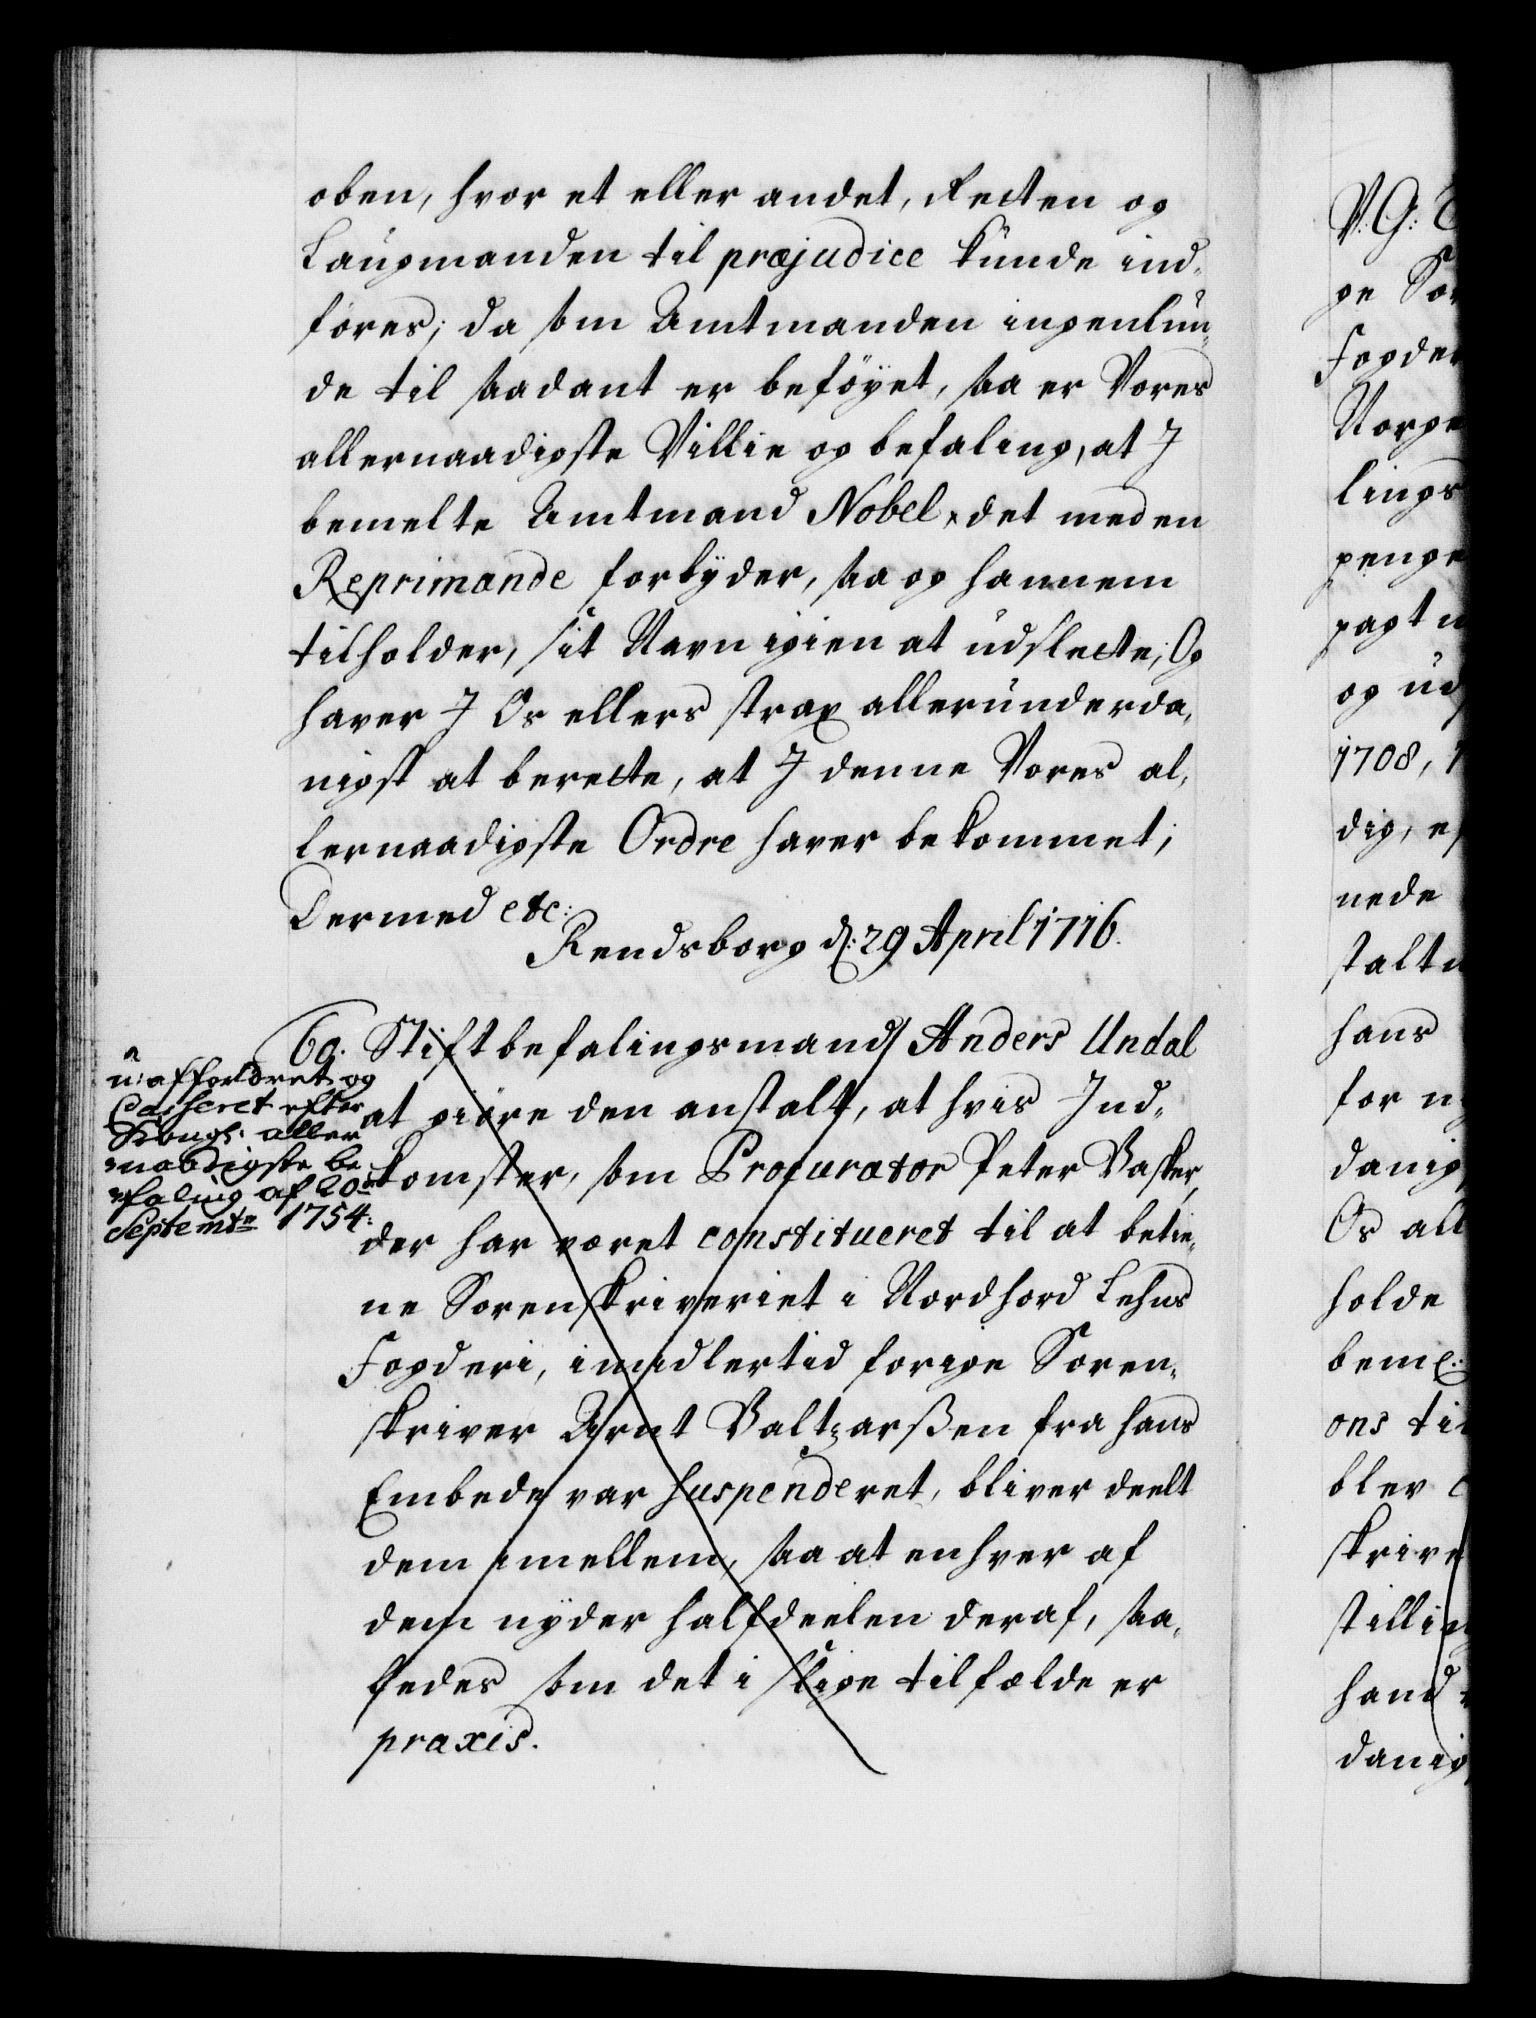 oben, hvor et eller andet, Retten og
Laugmanden til præjudice kunde ind-
føres; da som Amtmanden ingenlun-
de til saadant er beføyet, saa er Vores
allernaadigste Villie og befaling, at J
bemelte Amtmand Nobel det med en
Reprimande forbyder, saa og hannem
tilholder, sit Navn igien at udslette; Og
haver J Os ellers strax allerunderda-
nigst at berette, at J denne Vores al-
lernaadigste Ordre haver bekommet;
Dermed etc:
Rendsborg d: 29 April 1716.
60. Stiftbefalingsmand Anders Undal
at giøre den anstalt, at hvis Ind-
komster, som Procurator Peter Vasker,
der har været constitueret til at betie-
ne Sorenskriveriet i Nordhord Lehns
Fogderi, imidlertid forige Soren-
skriver Arnt Baltzarßen fra hans
Embede var suspenderet, bliver deelt
dem imellem, saa at enhver af
dem nyder halfdeelen deraf, saa-
ledes som det i slige tilfælde er
praxis.
affordret og
Casseret efter
Kongl: aller
naadigste be
faling af 20de
Septembr 1754:
V: G:
ge Sor
Fogder
Norge
lings
penge
pagt
og ud
1708,
dig,
nede
stalt
hans
for
danig
Os all
holde
beme:
ons ti
blev
skrive
stillin
hand
danig